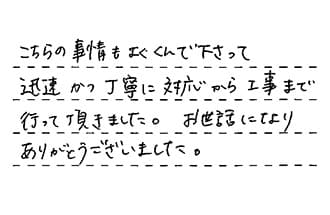 こちらの事情もよくくんで下さって
迅速かつ丁寧に対応から工事まで
行って頂きました。 お世話になり
ありがとうございました。